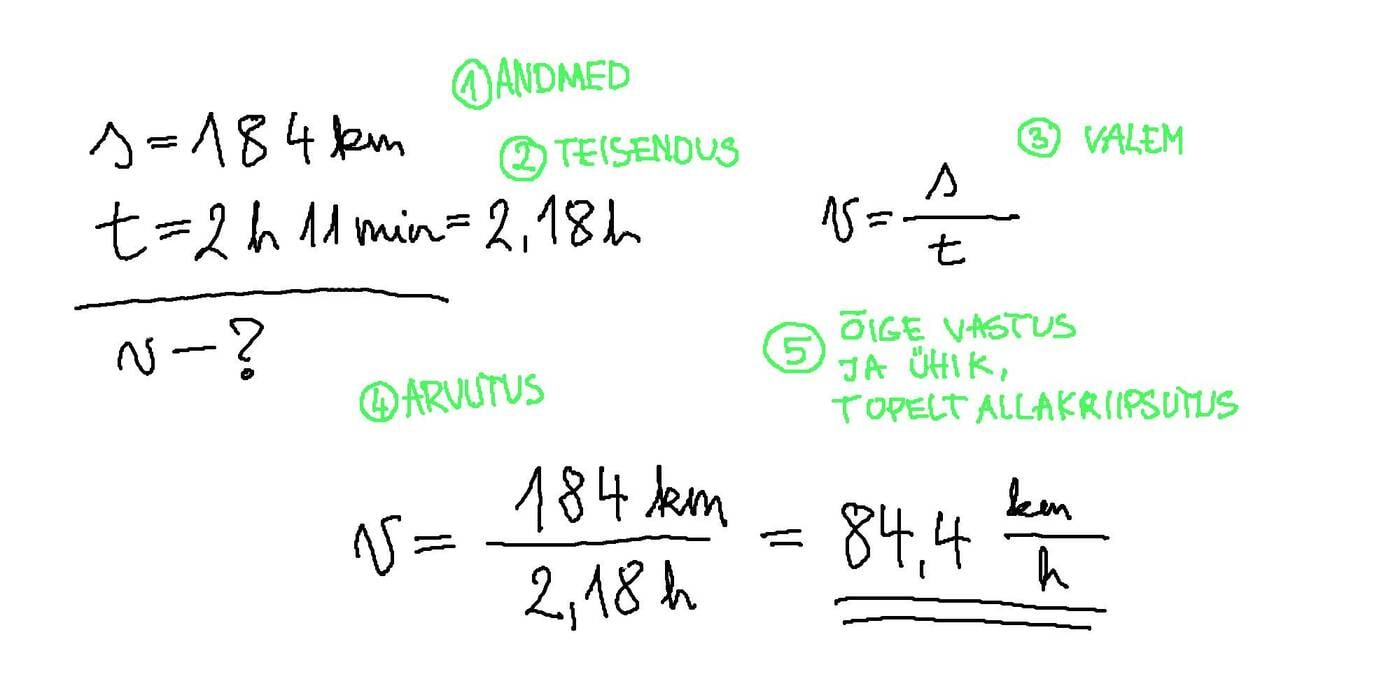 ① ANDMED
s = 184 km
② TEISENDUS
t = 2 h 11 min = 2,18 h
v – ?
③ VALEM
v = s / t
④ ARVUTUS
⑤ ÕIGE VASTUS
JA ÜHIK,
TOPELT ALLAKRIIPSUTUS
v = 184 km / 2,18 h = 84,4 km / h